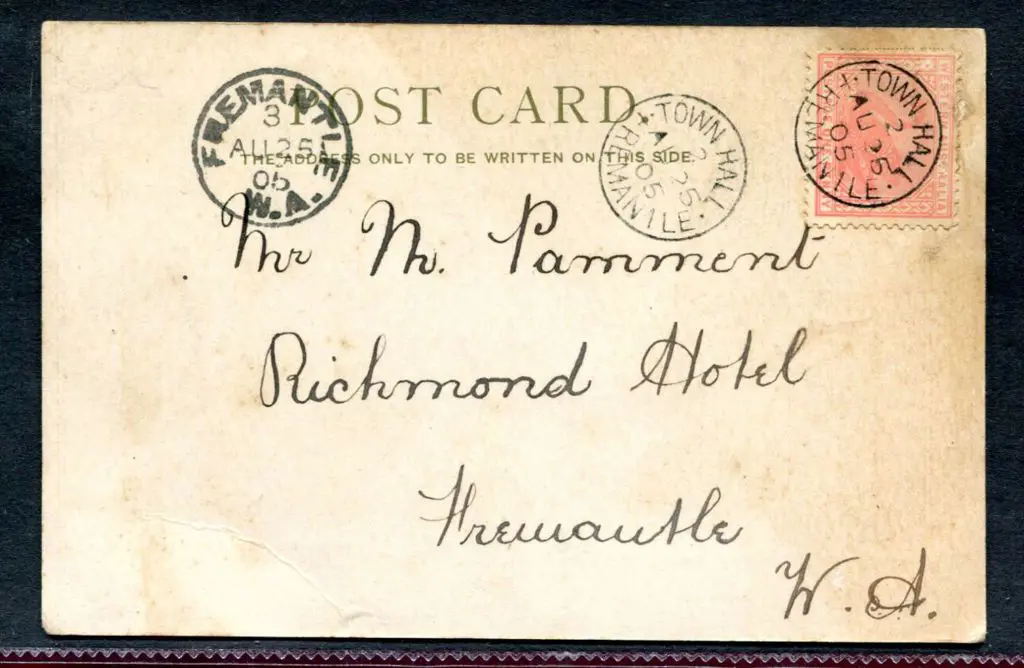 POST CARD.
THE ADDRESS ONLY TO BE WRITTEN ON THIS SIDE.
FREMANTLE
3
AU 25
05
W.A.
TOWN HALL
2
AU 25
05
FREMANTLE
TOWN HALL
2
AU 25
05
FREMANTLE
Mr M. Pamment
Richmond Hotel
Fremantle
W. A.